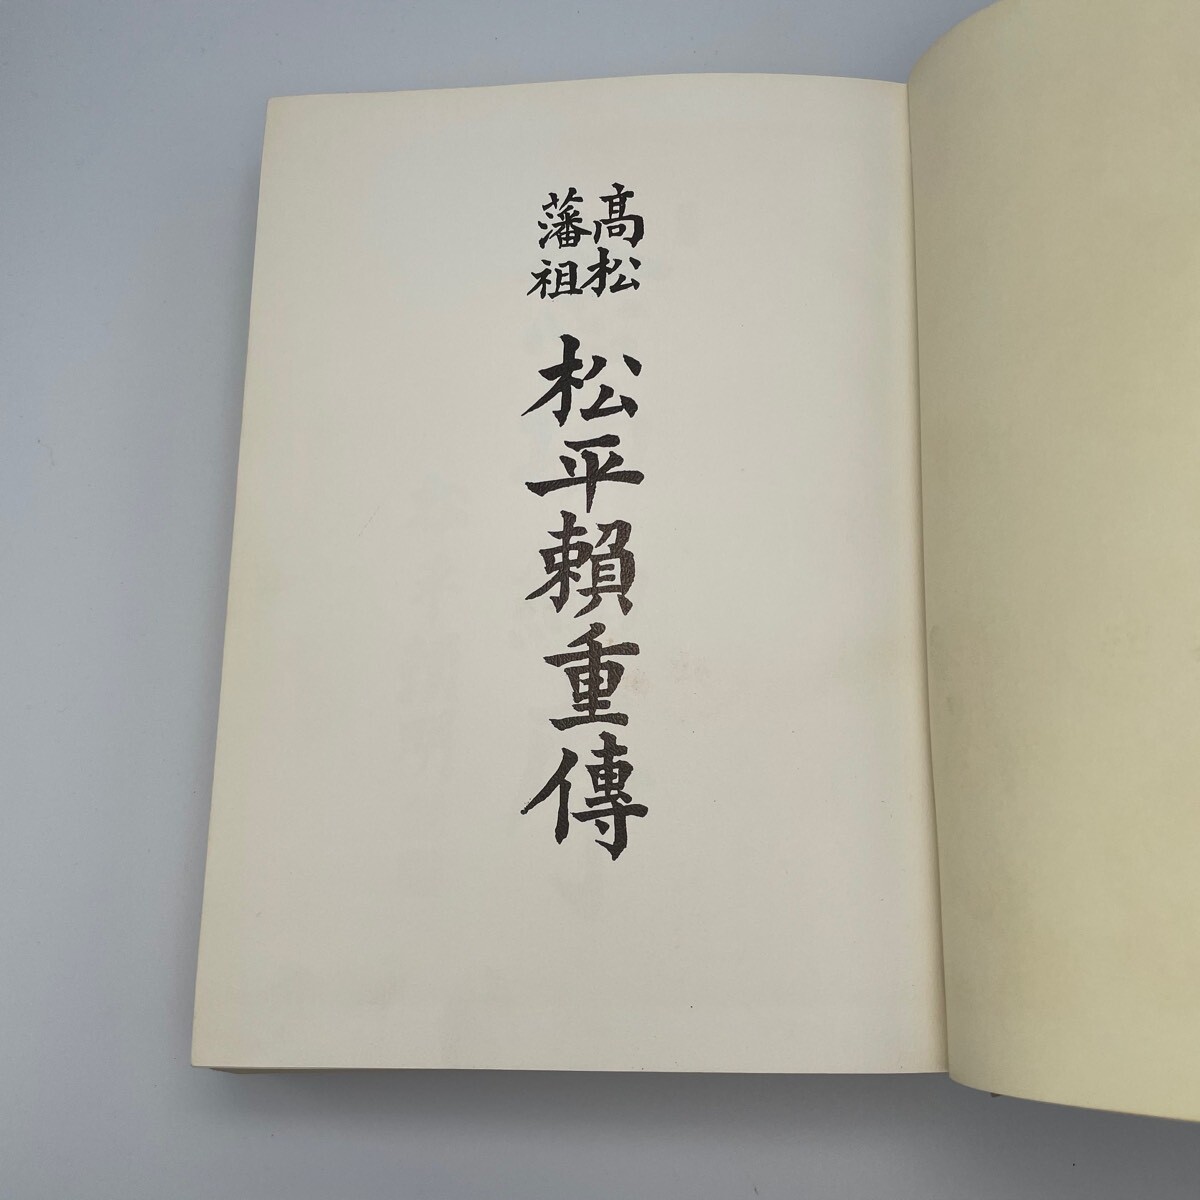 高松
藩祖
松平賴重傳